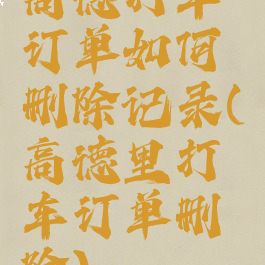 高德订单
订单如何
删除记录(
高德里打
车订单删
除)